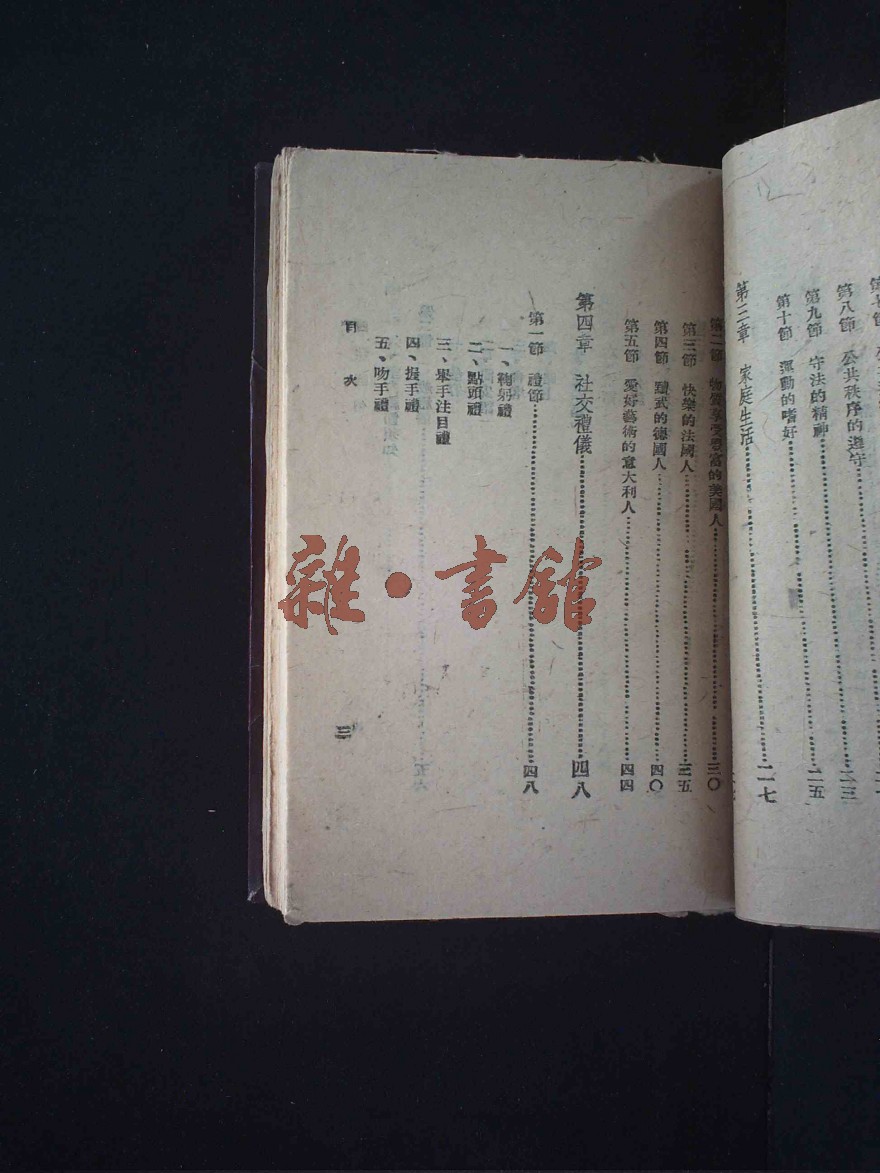 第八節 公共秩序的遵守……二三
第九節 守法的精神……二五
第十節 運動的嗜好
第三章 家庭生活……二七
第二節 物質享受豐富的美國人……三〇
第三節 快樂的法國人……三五
第四節 的德國人……四〇
第五節 愛好藝術的意大利人……四四
第四章 社交禮儀……四八
第一節 禮節……四八
一、鞠躬禮
二、點頭禮
三、舉手注目禮
四、握手禮
五、吻手禮
目次
三
雜·書館